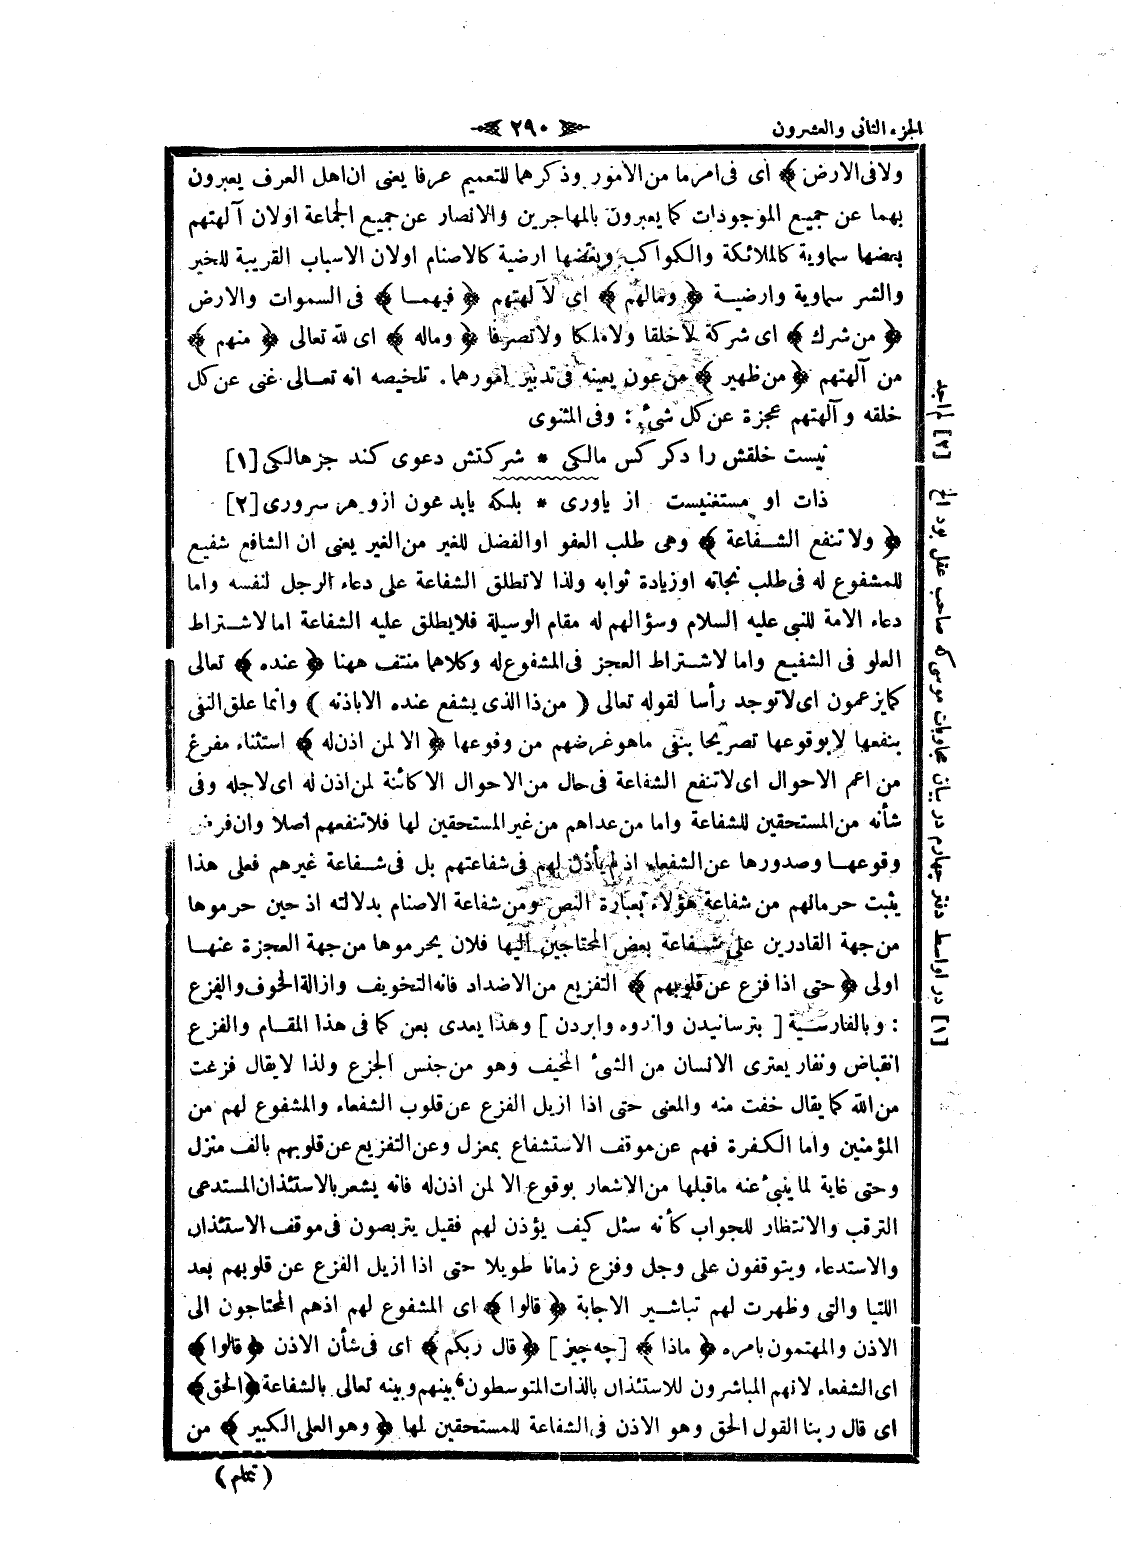 الجزء الثانى والعشرون
﴿ ٢٩٠ ﴾
ولا فى الارض ﴾ اى فى امر ما من الامور وذكرهما للتعميم عرفا يعنى ان اهل العرف يعبرون
بهما عن جميع الموجودات كما يعبرون بالمهاجرين والانصار عن جميع الجماعة او لان آلهتهم
بعضها سماوية كالملائكة والكواكب وبعضها ارضية كالاصنام او لان الاسباب القريبة للخير
والشر سماوية وارضيـة ﴿ ومالهم ﴾ اى لآلهتهم ﴿ فيهمـا ﴾ فى السموات والارض
﴿ من شرك ﴾ اى شركة لا خلقا ولا ملكا ولا تصرفا ﴿ وماله ﴾ اى لله تعالى ﴿ منهم ﴾
من آلهتهم ﴿ من ظهير ﴾ من عون يعينه فى تدبير امورهما. تلخيصه انه تعـالى غنى عن كل
خلقه و آلهتهم عجزة عن كل شىء : وفى المثنوى
نيست خلقش را دكر كس مالكى * شركتش دعوى كند جز هالكى [١]
ذات او مستغنيست از ياورى * بلكه يابد عون ازو هر سرورى [٢]
﴿ ولا تنفع الشـفاعة ﴾ وهى طلب العفو او الفضل للغير من الغير يعنى ان الشافع شفيع
للمشفوع له فى طلب نجاته او زيادة ثوابه ولذا لا تطلق الشفاعة على دعاء الرجل لنفسه واما
دعاء الامة للنبى عليه السلام وسؤالهم له مقام الوسيلة فلا يطلق عليه الشفاعة اما لاشـتراط
العلو فى الشفيع واما لاشـتراط العجز فى المشفوع له وكلاهما منتف ههنا ﴿ عنده ﴾ تعالى
كما يزعمون اى لا توجد رأسا لقوله تعالى ( من ذا الذى يشفع عنده الا باذنه ) وانما علق النفى
بنفعها لا بوقوعها تصريحا بنفى ما هو غرضهم من وقوعها ﴿ الا لمن اذن له ﴾ استثناء مفرغ
من اعم الاحوال اى لا تنفع الشفاعة فى حال من الاحوال الا كائنة لمن اذن له اى لاجله وفى
شأنه من المستحقين للشفاعة واما من عداهم من غير المستحقين لها فلا تنفعهم اصلا وان فرض
وقوعهـا وصدورها عن الشفعاء اذ لم يأذن لهم فى شفاعتهم بل فى شـفاعة غيرهم فعلى هذا
يثبت حرمانهم من شفاعة هؤلاء بعبارة النص ومن شفاعة الاصنام بدلالته اذ حين حرموها
من جهة القادرين على شـفاعة بعض المحتاجين اليها فلان يحرموها من جهة العجزة عنهـا
اولى ﴿ حتى اذا فزع عن قلوبهم ﴾ التفزيع من الاضداد فانه التخويف وازالة الخوف والفزع
: وبالفارسـية [ بترسانيدن واندوه وابردن ] وهذا يعدى بعن كما فى هذا المقـام والفزع
انقباض ونفار يعترى الانسان من الشىء المخيف وهو من جنس الجزع ولذا لا يقال فزعت
من الله كما يقال خفت منه والمعنى حتى اذا ازيل الفزع عن قلوب الشفعاء والمشفوع لهم من
المؤمنين واما الكـفرة فهم عن موقف الاستشفاع بمعزل وعن التفزيع عن قلوبهم بالف منزل
وحتى غاية لما ينبئ عنه ماقبلها من الاشعار بوقوع الا لمن اذن له فانه يشعر بالاستئذان المستدعى
الترقب والانتظار للجواب كأنه سئل كيف يؤذن لهم فقيل يتربصون فى موقف الاستئذان
والاستدعاء ويتوقفون على وجل وفزع زمانا طويلا حتى اذا ازيل الفزع عن قلوبهم بعد
اللتيا والتى وظهرت لهم تباشـير الاجابة ﴿ قالوا ﴾ اى المشفوع لهم اذهم المحتاجون الى
الاذن والمهتمون بامره ﴿ ماذا ﴾ [ چه چيز ] ﴿ قال ربكم ﴾ اى فى شأن الاذن ﴿ قالوا ﴾
اى الشفعاء لانهم المباشرون للاستئذان بالذات المتوسطون بينهم وبينه تعالى بالشفاعة ﴿ الحق ﴾
اى قال ربنا القول الحق وهو الاذن فى الشفاعة للمستحقين لها ﴿ وهو العلى الكبير ﴾ من
( تمام )
[١] در اواسط دفتر چهارم در بيان مجاوبات موسى كه صاحب عقل بود الخ [٢] لم اجد